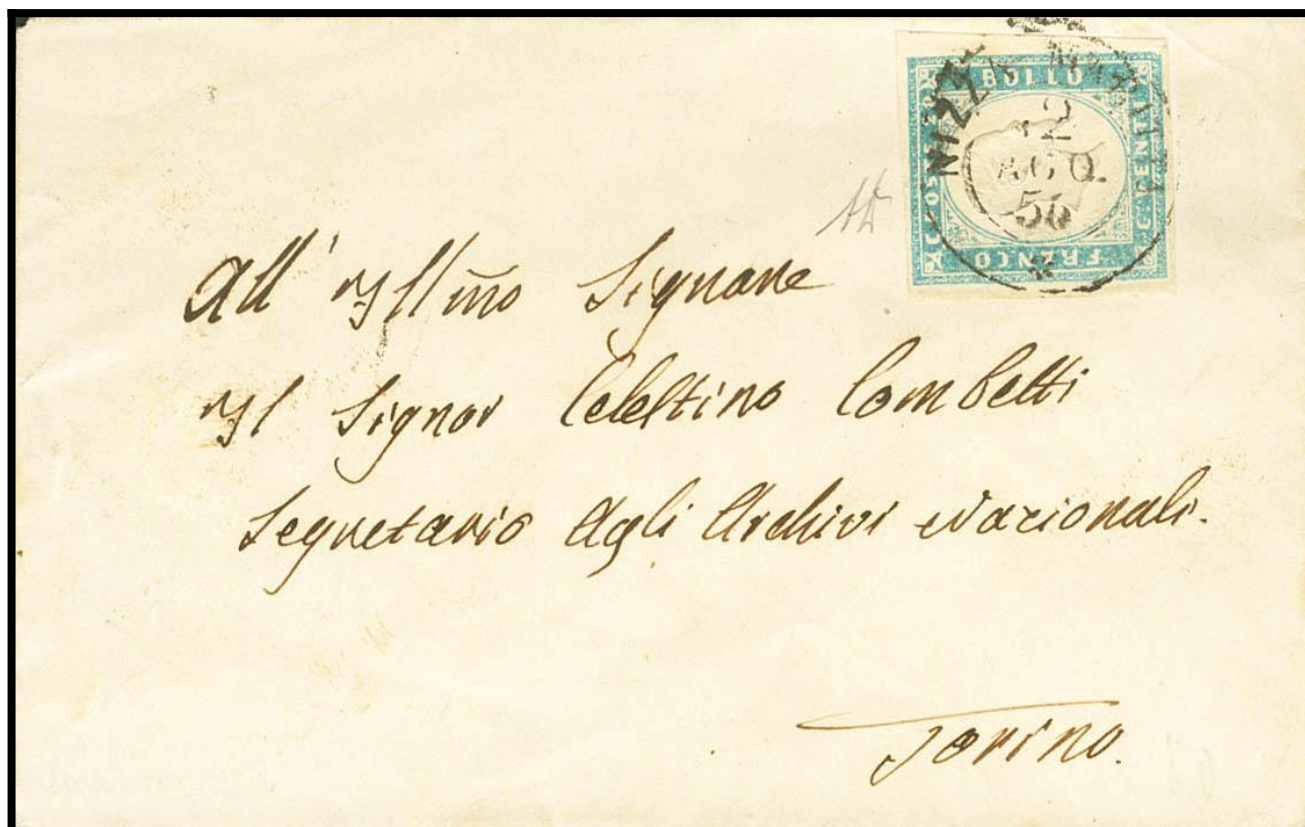 NIZZA MARITTA
12
AGO.
56
BOLLO
C. POSTE 20
CENT.
FRANCO
All' Ill mo Signore
Il Signor Celestino Combetti
Segretario Agli Archivi Nazionali.
Torino.